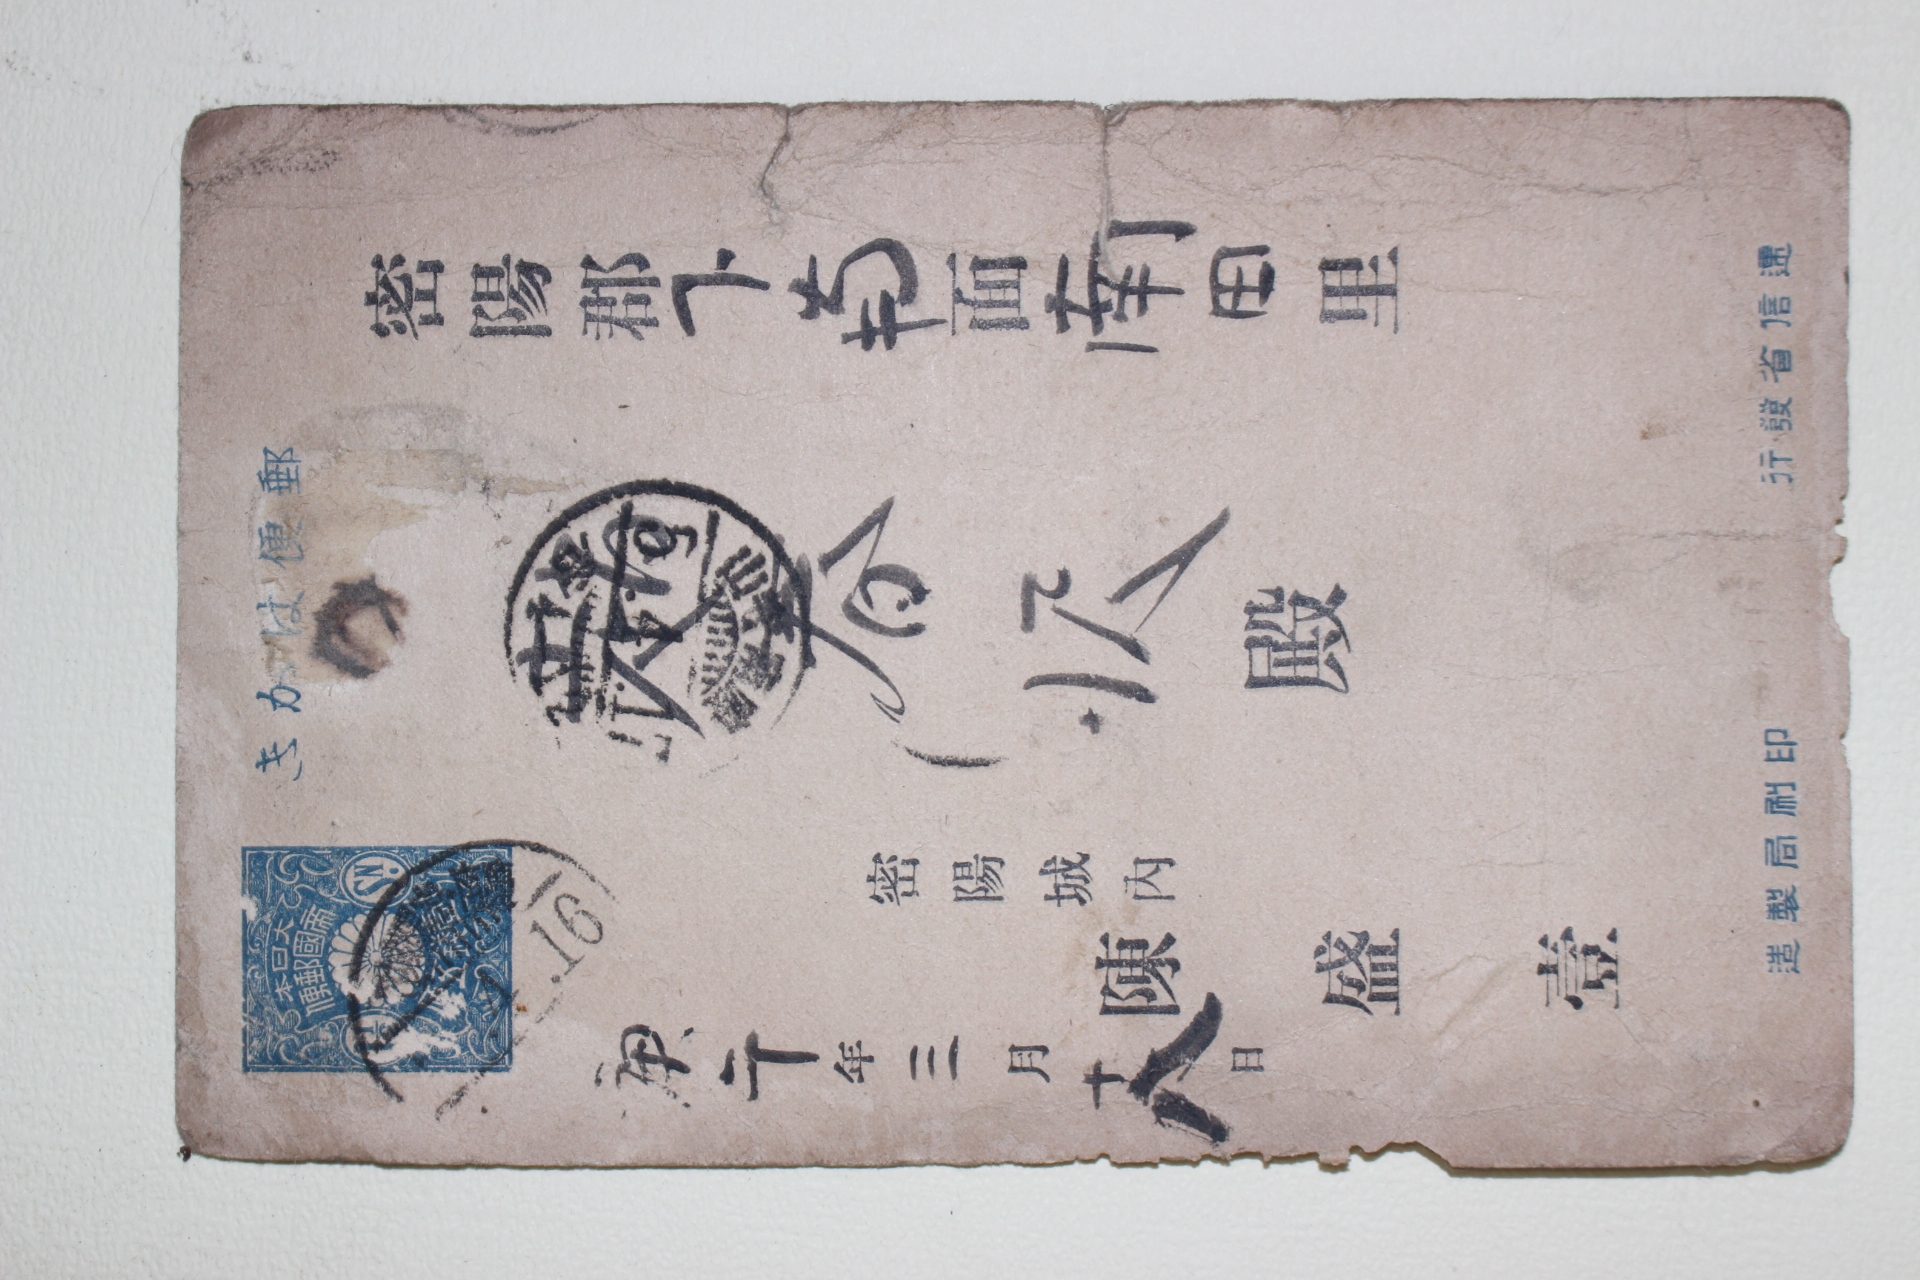 郵便はがき
大日本
帝國郵便
壹銭五厘
1½
SN.
16
密陽郡下南面南田里
春
殿
密陽城內
陳盛壹
庚
年三月十八日
遞信省發行
印刷局製造